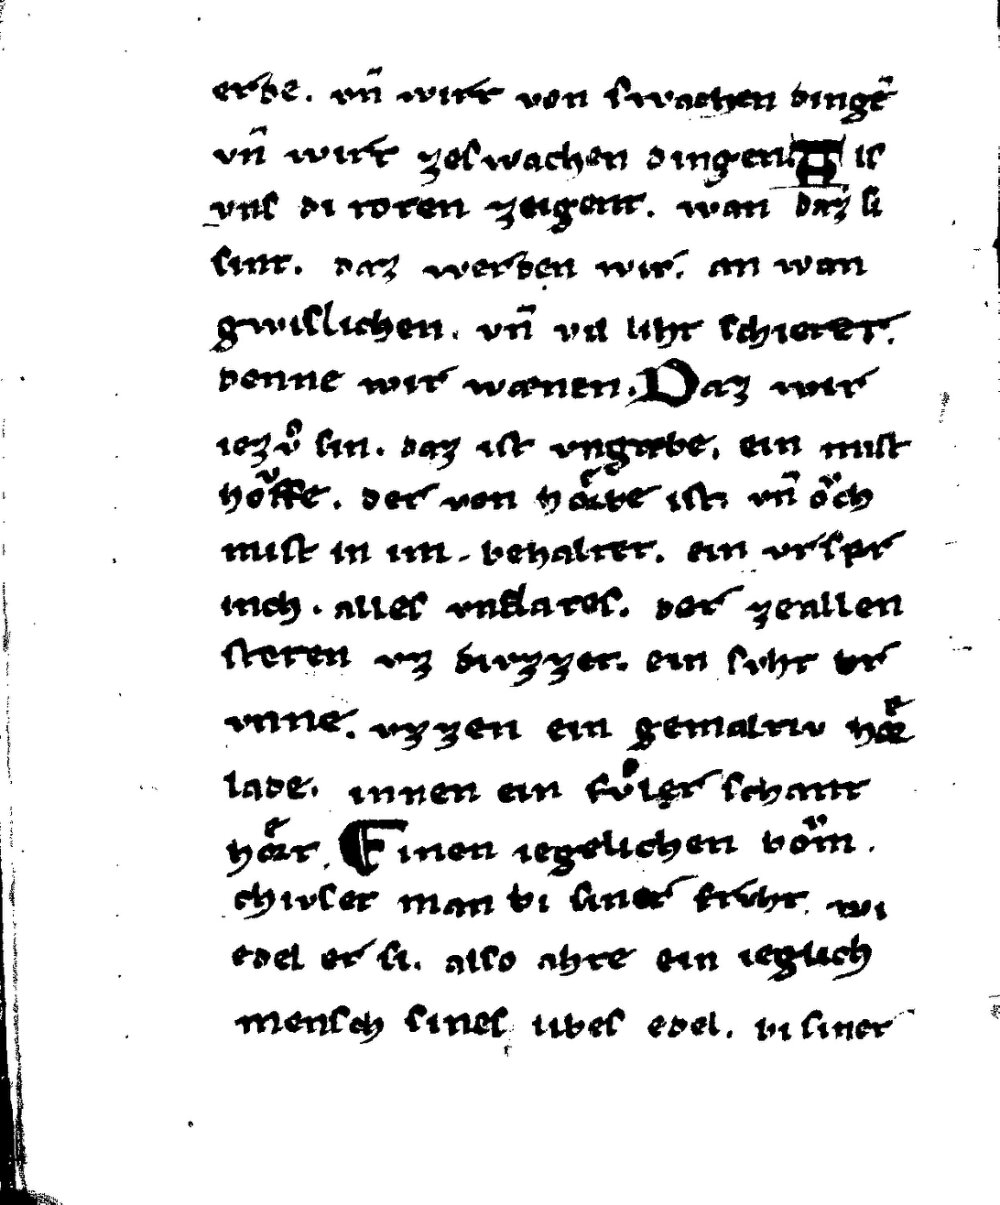 erde. vn̄ wirt von swachen dingē
vn̄ wirt zeswachen dingen. Als
vns di toten zeigent. wan daz si
sint. daz werden wir. an wan
gwislichen. vn̄ vil liht schierer.
denne wir wænen. Daz wir
iezvͦ sin. daz ist vngæbe. ein mist
hoͮffe. der von hoͤrwe ist. vn̄ oͮch
mist in im. behaltet. ein vrspr
inch. alles vnflates. der zeallen
steten vz divzzet. ein svht br
vnne. vzzen ein gemaltiv hoͤr
lade. innen ein fvͦler schant
hoͤrt. Einen iegelichen boͮm.
chivset man bi siner frvht. wi
edel er si. also ahte ein ieglich
mensch sines libes edel. bi siner